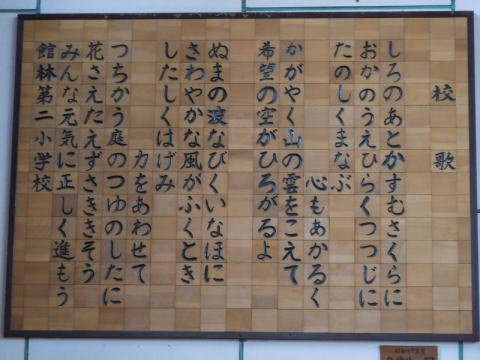 校歌
しろのあとかすむさくらに
おかのうえひらくつつじに
たのしくまなぶ
心もあかるく
かがやく山の雲をこえて
希望の空がひろがるよ
ぬまの波なびくいなほに
さわやかな風がふくとき
したしくはげみ
力をあわせて
つちかう庭のつゆのしたに
花さえたえずさききそう
みんな元気に正しく進もう
館林第二小学校